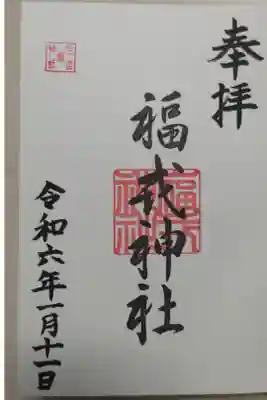 奉拝
福戎神社
令和六年一月十一日